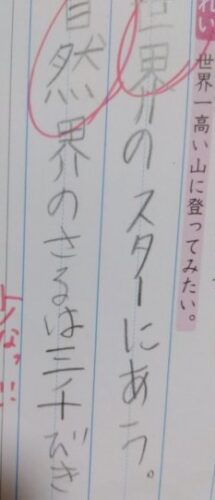 れい 世界一高い山に登ってみたい。
世界のスターにあう。
自然界のさるは三千びき
トルなァ!!